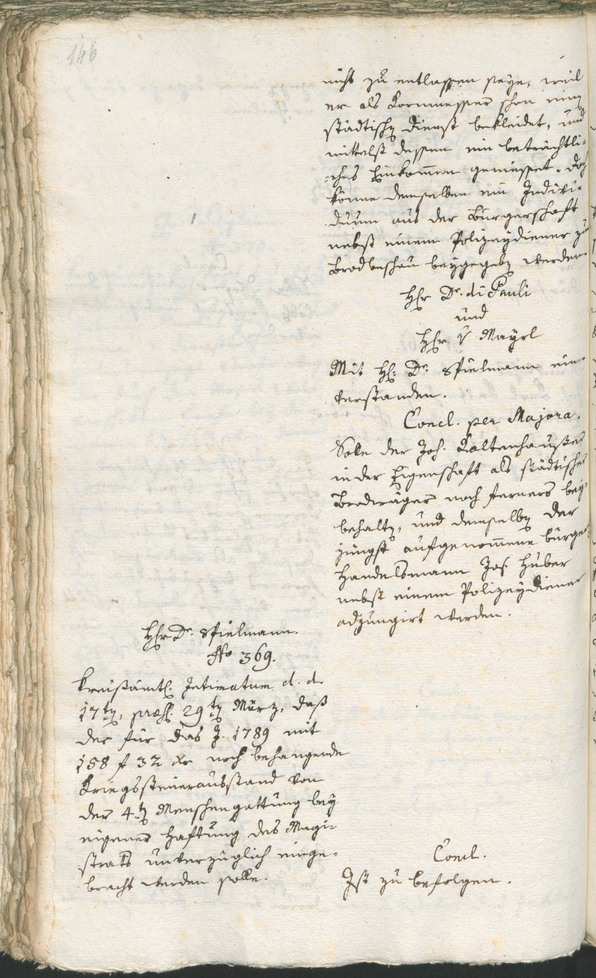 146
nicht zu entlassen seye, weil
er als Kornmesser schon einen
städtischen Dienst bekleidet, und
mittelst dessen ein beträchtli-
ches Einkommen geniesset. Doch
könne demselben ein Indivi-
duum aus der Burgerschaft
nebst einem Polizeydiener zur
Brodbeschau beygegeben werden.
Hhr Dr. di Pauli
und
Hhr v Mayrl
Mit H: Dr. Spielmann ein-
verstanden.
Concl. per Majora.
Solle der Joh. Kaltenhauser
in der Eigenschaft als städtischer
Brodwäger noch ferners bey
behalten, und demselben der
jüngst aufgenommene bürgerl.
Handelsmann Jos. Huber
nebst einem Polizeydiener
adjungirt werden.
Hhr Dr. Spielmann.
No 369.
Kreisämtl. Intimatum d. d.
17ten, praes. 29ten März, daß
der für das J. 1789 mit
158 f 32 xr noch behangende
Kriegssteuerausstand von
der 4ten Menschengattung bey
eigener Haftung des Magi-
strats unverzüglich einge-
bracht werden solle.
Concl.
Ist zu befolgen.